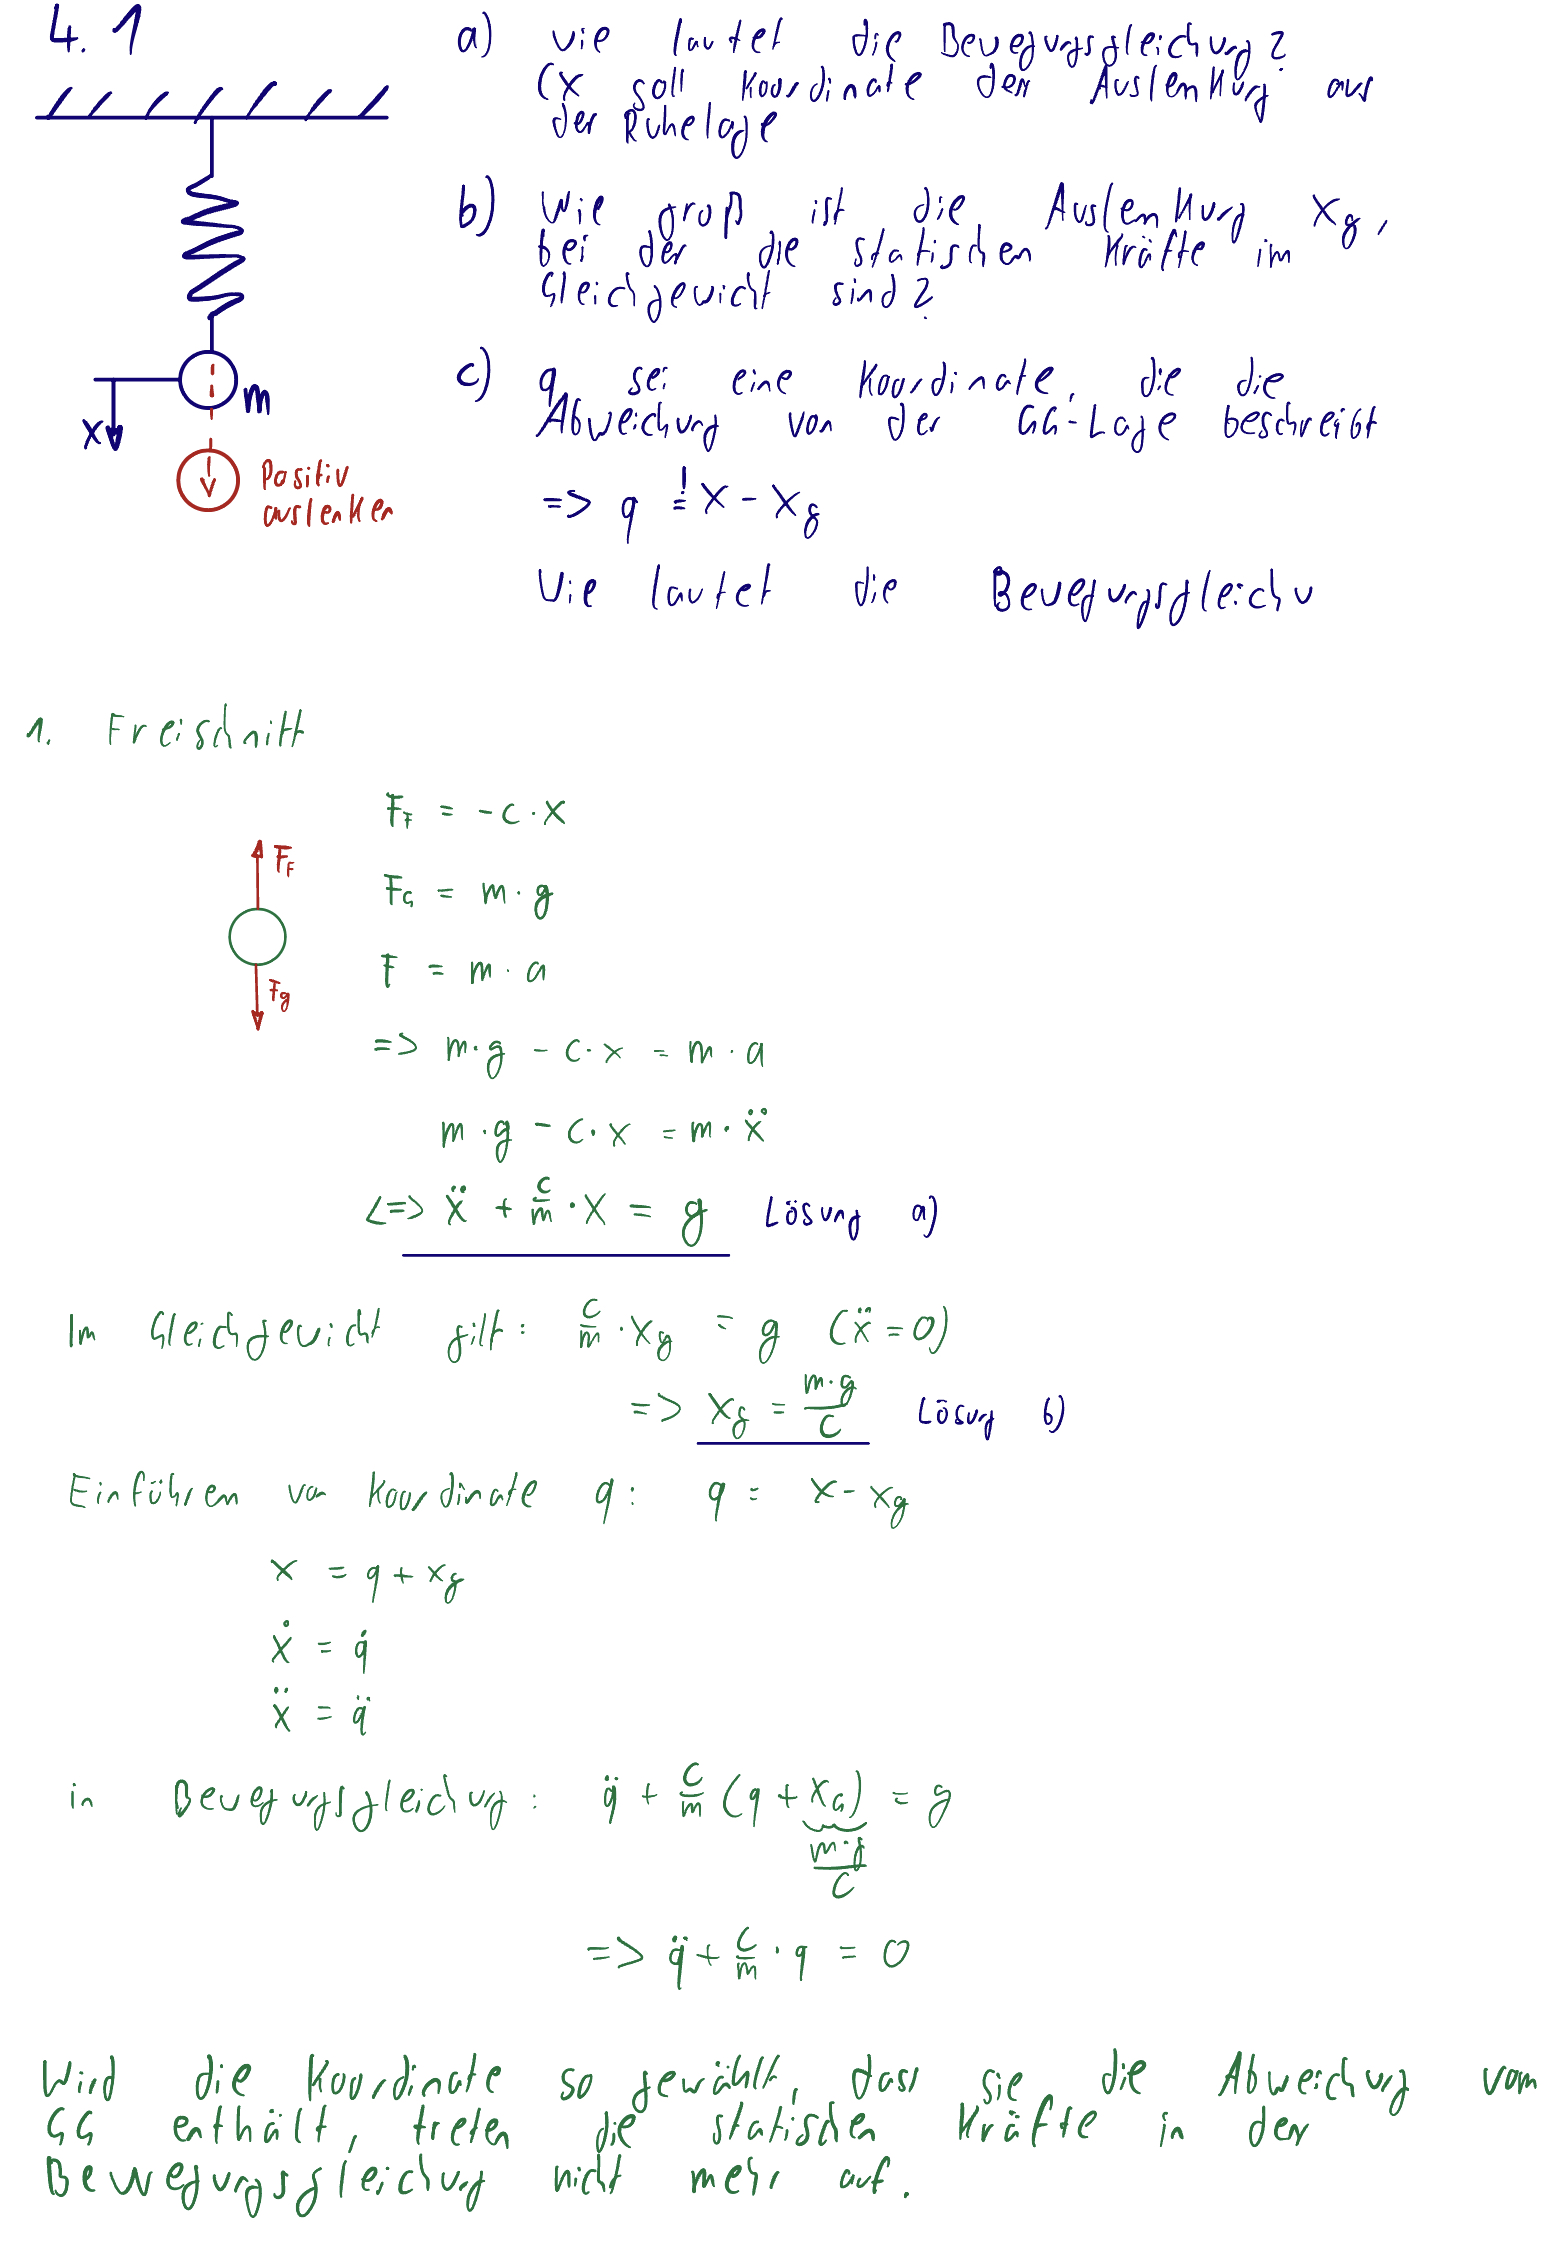 4.1
a) wie lautet die Bewegungsgleichung?
(x soll Koordinate der Auslenkung aus
der Ruhelage
b) Wie groß ist die Auslenkung x_g,
bei der die statischen Kräfte im
Gleichgewicht sind?
c) q sei eine Koordinate, die die
Abweichung von der GG-Lage beschreibt
=> q != x - x_g
Wie lautet die Bewegungsgleichu
m
x
Positiv
auslenken
1. Freischnitt
F_F
F_g
F_F = -c · x
F_G = m · g
F = m · a
=> m · g - c · x = m · a
m · g - c · x = m · ẍ
<=> ẍ + c/m · x = g Lösung a)
Im Gleichgewicht gilt: c/m · x_g = g (ẍ = 0)
=> x_g = m·g/c Lösung b)
Einführen von Koordinate q: q = x - x_g
x = q + x_g
ẋ = q̇
ẍ = q̈
in Bewegungsgleichung: q̈ + c/m (q + x_G) = g
m·g/c
=> q̈ + c/m · q = 0
Wird die Koordinate so gewählt, dass sie die Abweichung vom
GG enthält, treten die statischen Kräfte in der
Bewegungsgleichung nicht mehr auf.